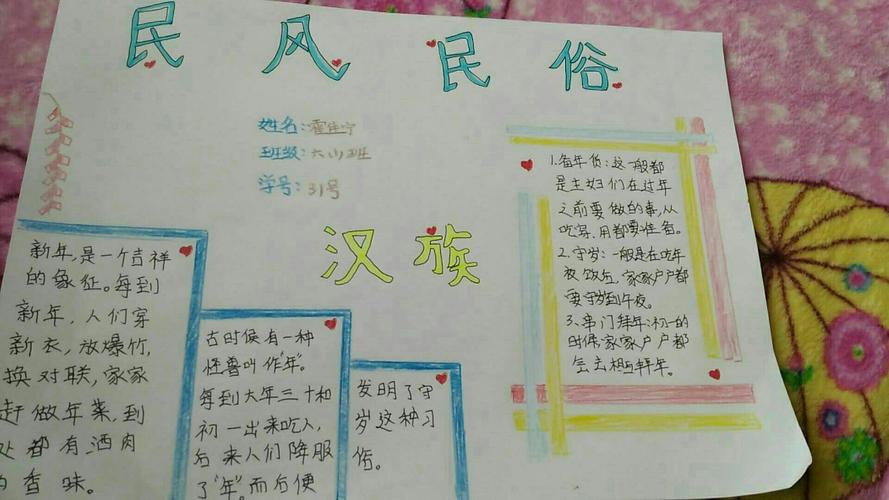 民风民俗
姓名:霍佳宁
班级:六(1)班
学号:31号
汉族
新年,是一个吉祥
的象征。每到
新年,人们穿
新衣,放爆竹,
换对联,家家
赶做年菜,到
处都有酒肉
的香味。
古时候有一种
怪兽叫作“年”。
每到大年三十和
初一出来吃人,
后来人们降服
了“年”。而后便
发明了守
岁这种习
俗。
1.备年货:这一般都
是主妇们在过年
之前要做的事,从
吃穿、用都要准备。
2.守岁:一般是在吃年
夜饭后,家家户户都
要守岁到午夜。
3、串门拜年:初一的
时候,家家户户都
会去相与拜年。